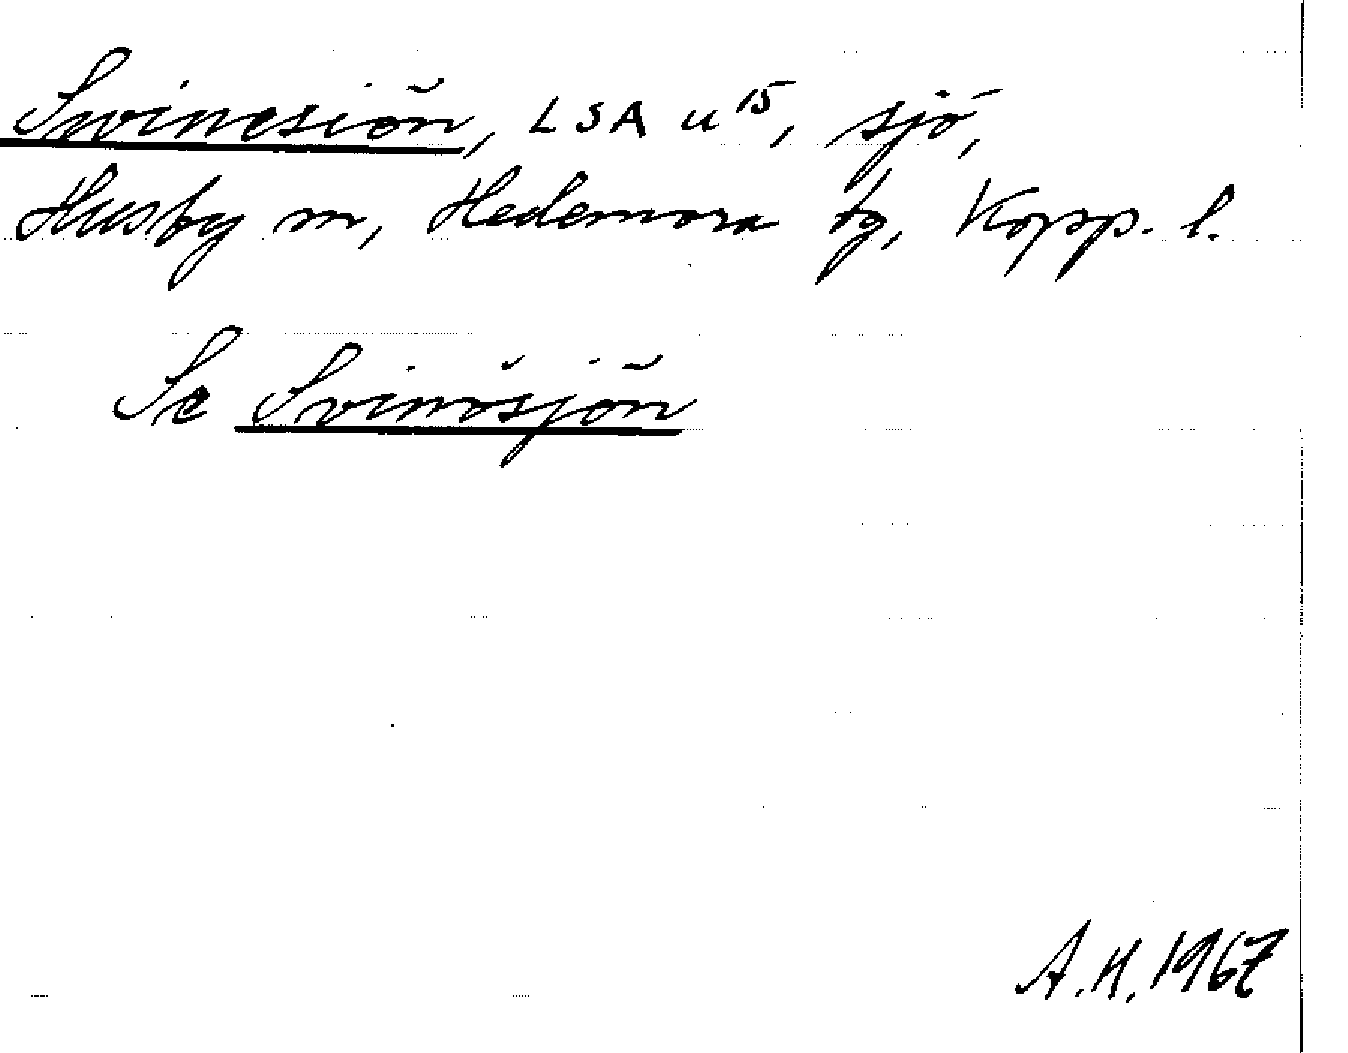 Swinesiön, LSA u15, sjö,
Husby sn, Hedemora tg, Kopp. l.
Se Svinösjön
A.H. 1967